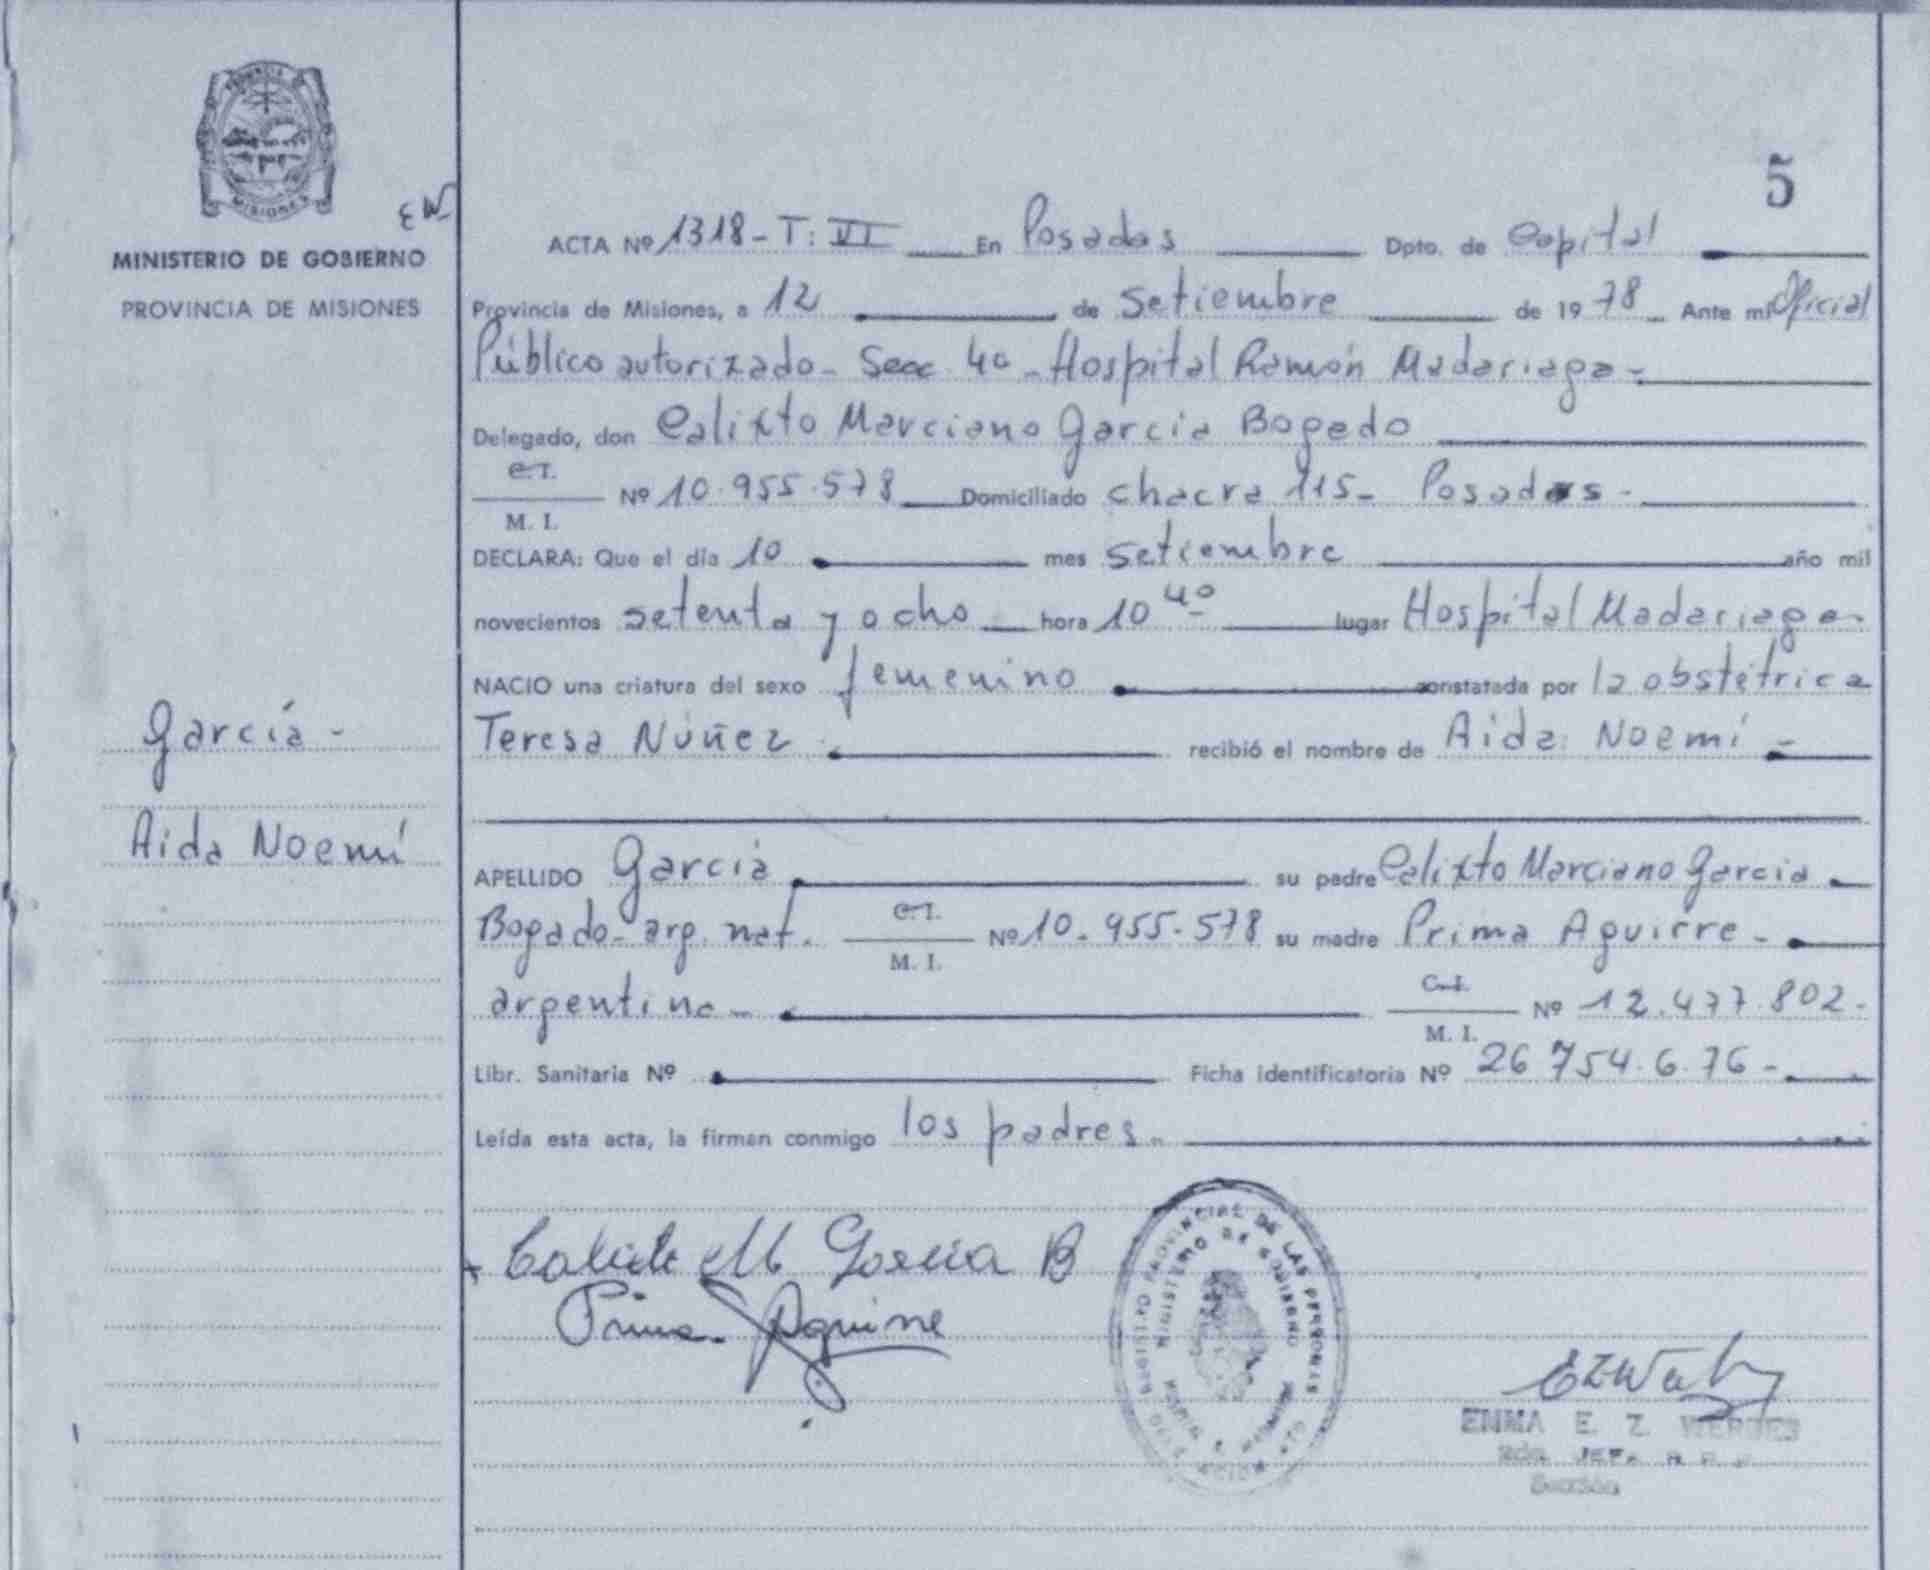 PROVINCIA DE
MISIONES
EW
MINISTERIO DE GOBIERNO
PROVINCIA DE MISIONES
García -
Aida Noemí
5
ACTA Nº 1318 - T: VI En Posadas Dpto. de Capital
Provincia de Misiones, a 12 de Setiembre de 1978 Ante mí Oficial
Público autorizado - Secc 4a - Hospital Ramón Madariaga -
Delegado, don Calixto Marciano García Bogado
C.I.
M. I. Nº 10.955.578 Domiciliado chacra 115 - Posadas -
DECLARA: Que el día 10 mes setiembre año mil
novecientos setenta y ocho hora 10 40 lugar Hospital Madariaga -
NACIO una criatura del sexo femenino constatada por la obstétrica
Teresa Núñez recibió el nombre de Aida Noemí -
APELLIDO García su padre Calixto Marciano García
Bogado - arg. nat. C.I. M. I. Nº 10.955.578 su madre Prima Aguirre -
argentina - C.I. M. I. Nº 12.477.802 -
Libr. Sanitaria Nº Ficha identificatoria Nº 26 754.6.76 -
Leída esta acta, la firman conmigo los padres -
Calixto M García B
Prima Aguirre
REGISTRO PROVINCIAL DE LAS PERSONAS
MINISTERIO DE GOBIERNO
EMMA E. Z.
JEFA
Sección